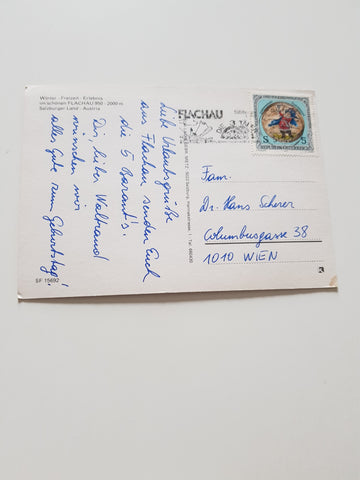 Winter - Freizeit - Erlebnis
im schönen FLACHAU 950 - 2000 m
Salzburger Land - Austria
Liebe Urlaubsgrüße
aus Flachau senden Euch
die 5 Barant's.
Dir, liebe Waltraud
wünschen wir
alles Gute zum Geburtstag!
SF 15692
FLACHAU
REPUBLIK ÖSTERREICH
5
Fam.
Dr. Hans Scherer
Columbusgasse 38
1010 WIEN